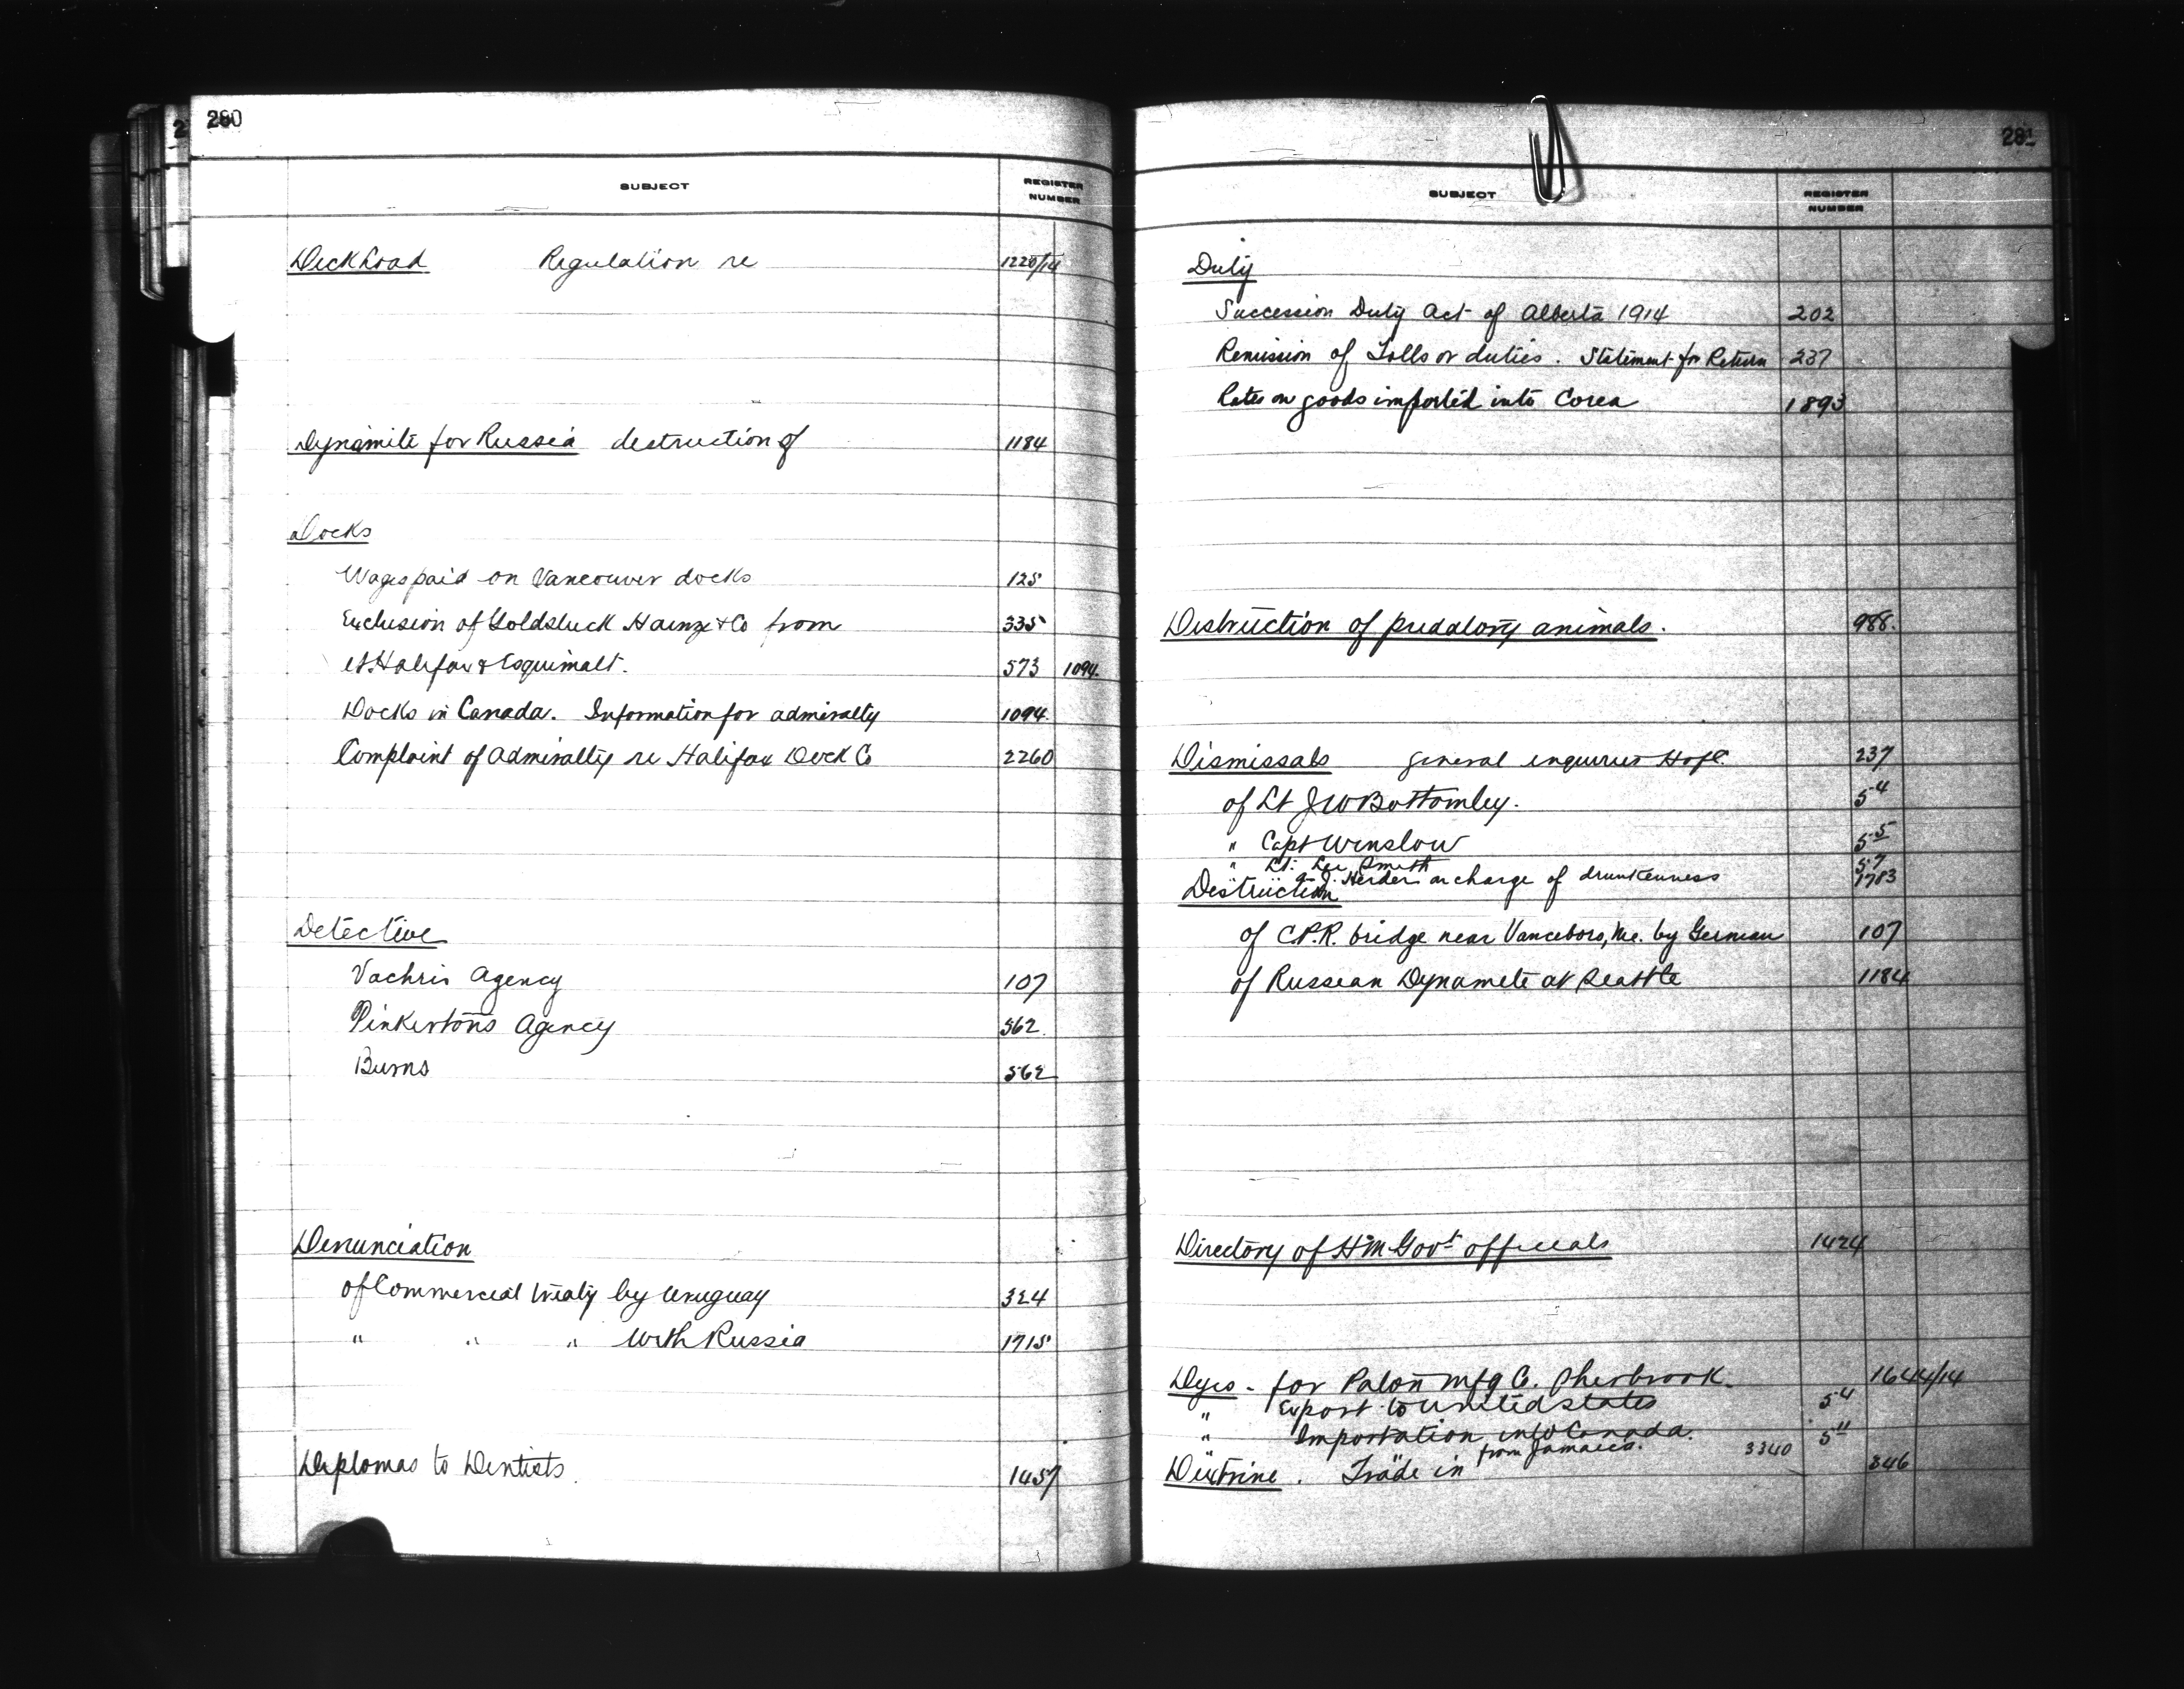 280
SUBJECT REGISTER NUMBER
Deck Load Regulation re 1220/14
Dynamite for Russia destruction of 1184
Docks
Wages paid on Vancouver docks 125
Exclusion of Goldsluck Hainze & Co from 335
at Halifax & Esquimalt. 573 1094.
Docks in Canada. Information for admiralty 1094.
Complaint of Admiralty re Halifax Dock Co 2260
Detective
Vachris Agency 107
Pinkertons Agency 562.
Burns 562
Denunciation
of Commercial treaty by Uruguay 324
" " " With Russia 1715
Diplomas to Dentists. 1457
281
SUBJECT REGISTER NUMBER
Duty
Succession Duty Act of Alberta 1914 202
Remission of Tolls or duties. Statement for Return 237
Rates on goods imported into Corea 1893
Destruction of predatory animals. 988.
Dismissals general enquiries HofC. 237
of Lt J W Bottomley. 5-4
" Capt Winslow 5-5
" Lt. Lee Smith 57
Herder on charge of drunkenness 1783
Destruction
of C.P.R. bridge near Vanceboro, Me. by German 107
of Russian Dynamite at Seattle 1184
Directory of HM Govt officials 1424
Dyes - for Paton Mfg Co. Sherbrook. 1644/14
" Export to United States 54
" Importation into Canada. 511
from Jamaica. 3340
Dextrine. Trade in 346